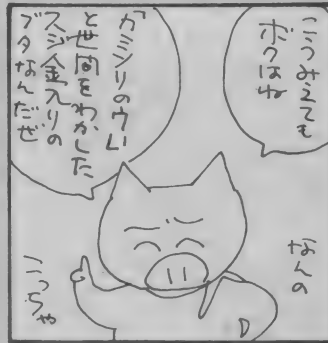 こうみえても
ボクはね
「カミソリのウい
と世間をわかした
スジ金入りの
ブタなんだぜ
なんの
こっちゃ